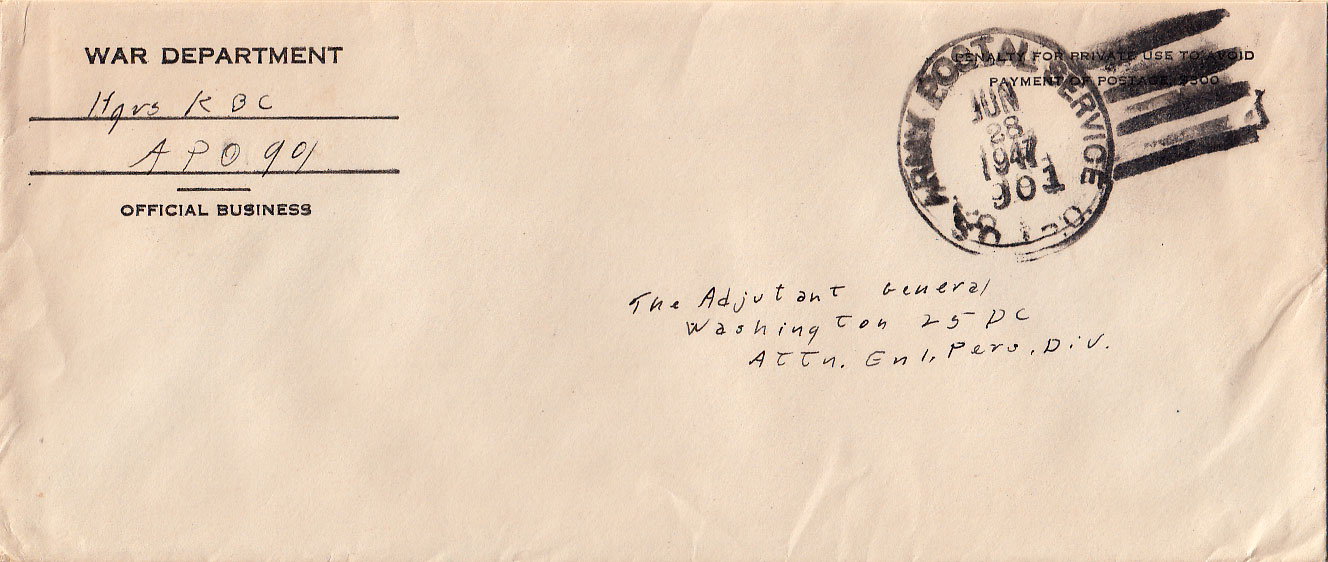 WAR DEPARTMENT
Hqrs K B C
A P O 901
OFFICIAL BUSINESS
PENALTY FOR PRIVATE USE TO AVOID
PAYMENT OF POSTAGE, $300
ARMY POSTAL SERVICE
JUN
28
1947
901
A.P.O.
The Adjutant General
Washington 25 DC
Attn. Enl. Pers. Div.